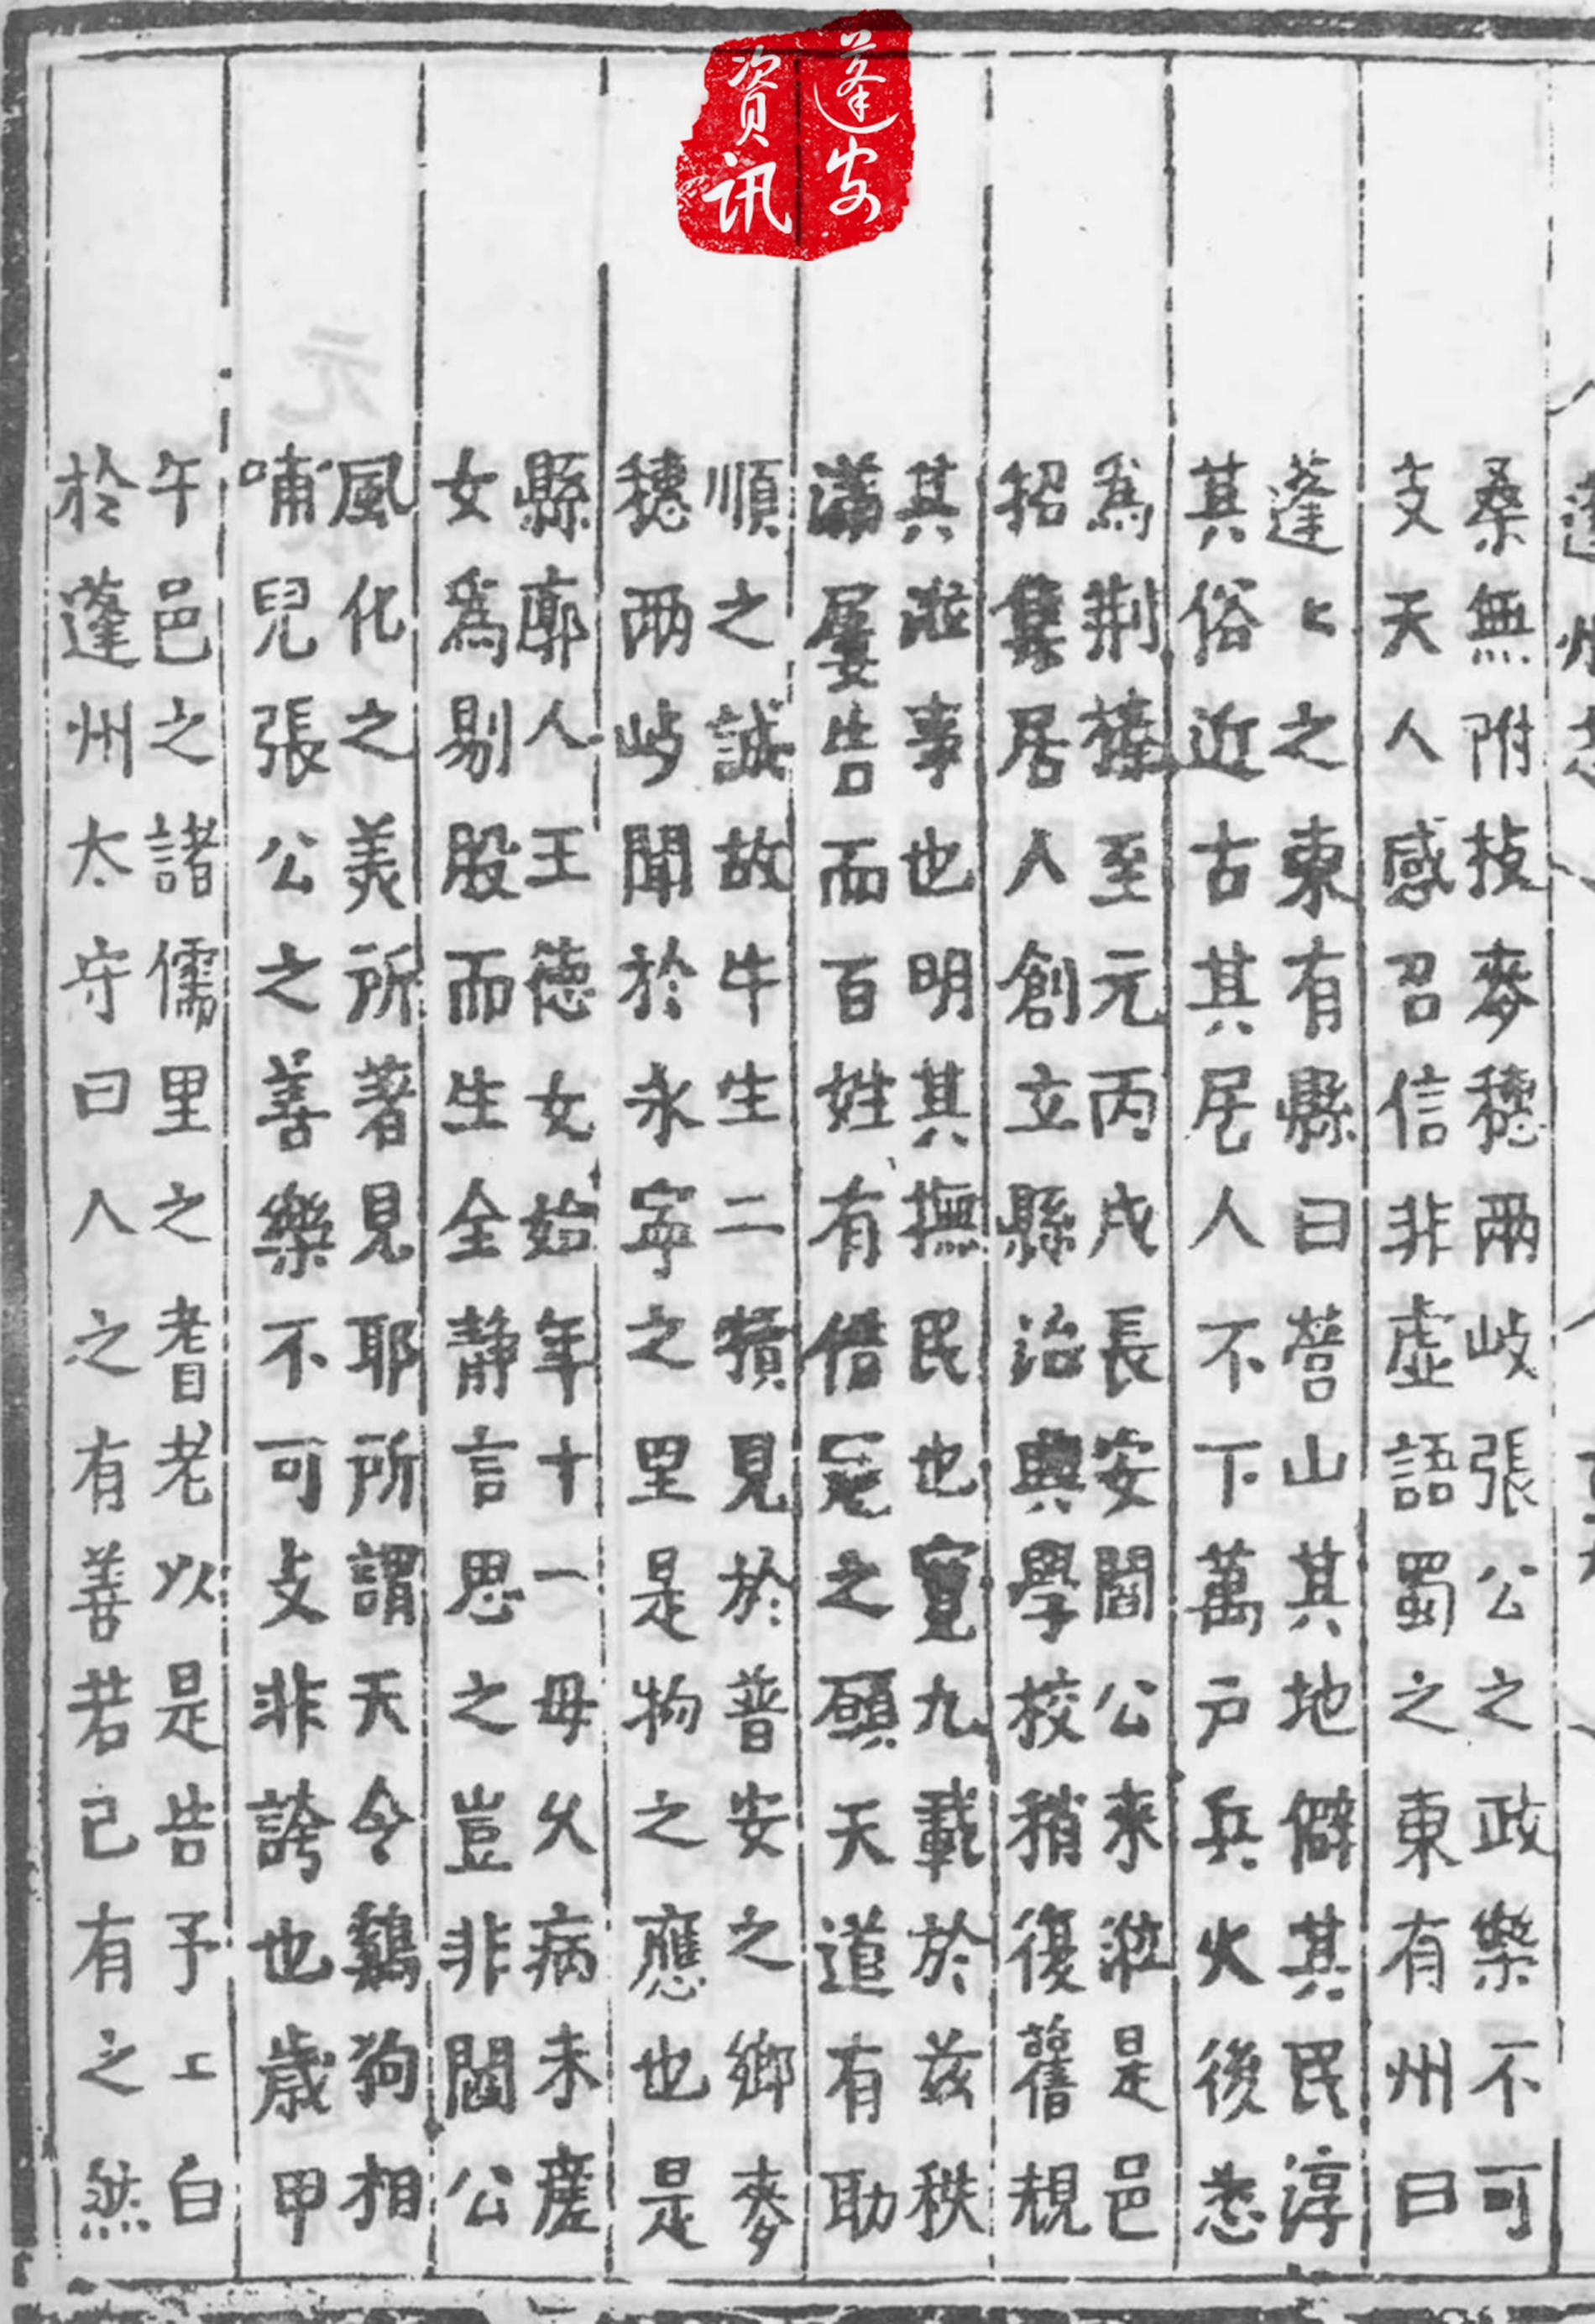 蓬安
資訊
桑無附枝麥穗兩岐張公之政樂不可
支天人感召信非虛語蜀之東有州曰
蓬〻之東有縣曰營山其地僻其民淳
其俗近古其居人不下萬戶兵火後悉
為荆榛至元丙戌長安閻公來涖是邑
招集居人創立縣治興學校稍復舊規
其涖事也明其撫民也寬九載於茲秩
滿屢告而百姓有借寇之願天道有助
順之誠故牛生二犢見於普安之鄉麥
穗兩岐聞於永寧之里是物之應也是
縣鄣人王德女始年十一母久病未瘥
女為剔股而生全靜言思之豈非閻公
風化之美所著見耶所謂天令鷄狗相
哺兒張公之善樂不可支非誇也歲甲
午邑之諸儒里之耆老以是告予〻白
於蓬州太守曰人之有善若己有之然